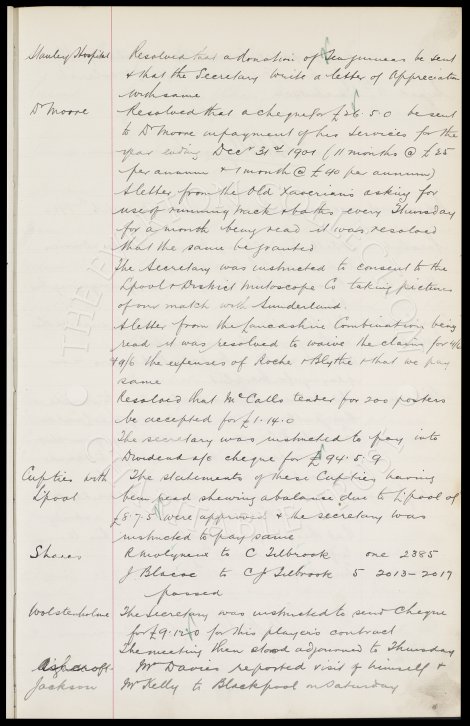 Stanley Hospital Resolved that a donation of Ten guineas be sent
& that the Secretary write a letter of Appreciation
with same
Dr Moore Resolved that a cheque for £26.5.0 be sent
to Dr Moore in payment of his Services for the
year ending Decr 31st 1901 (11 months @ £25
per annum & 1 month @ £40 per annum)
A letter from the Old Xaverians asking for
use of running track & baths every Thursday
for a month being read it was resolved
that the same be granted
The Secretary was instructed to consent to the
Lpool & District Mutoscope Co taking pictures
of our match with Sunderland.
A letter from the Lancashire Combination being
read it was resolved to waive the claim for
9/6 the expenses of Roche & Blythe & that we pay
same
Resolved that McCalls tender for 200 posters
be accepted for £1.14.0
The secretary was instructed to pay into
Dividend a/c cheque for £94.5.9
Cup ties with The statements of these Cup ties having
Lpool been read shewing a balance due to Lpool of
£8.7.5 were approved & the secretary was
instructed to pay same
Shares R Molyneux to C Tilbrook one 2385
J Blscoe to C J Tilbrook 5 2013-2017
passed
Wolstenholme The Secretary was instructed to send Cheque
for £9.12.0 for this players contract
The meeting then stood adjourned to Thursday
Ashcroft Mr Davies reported visit of himself &
Jackson Mr Kelly to Blackpool on Saturday